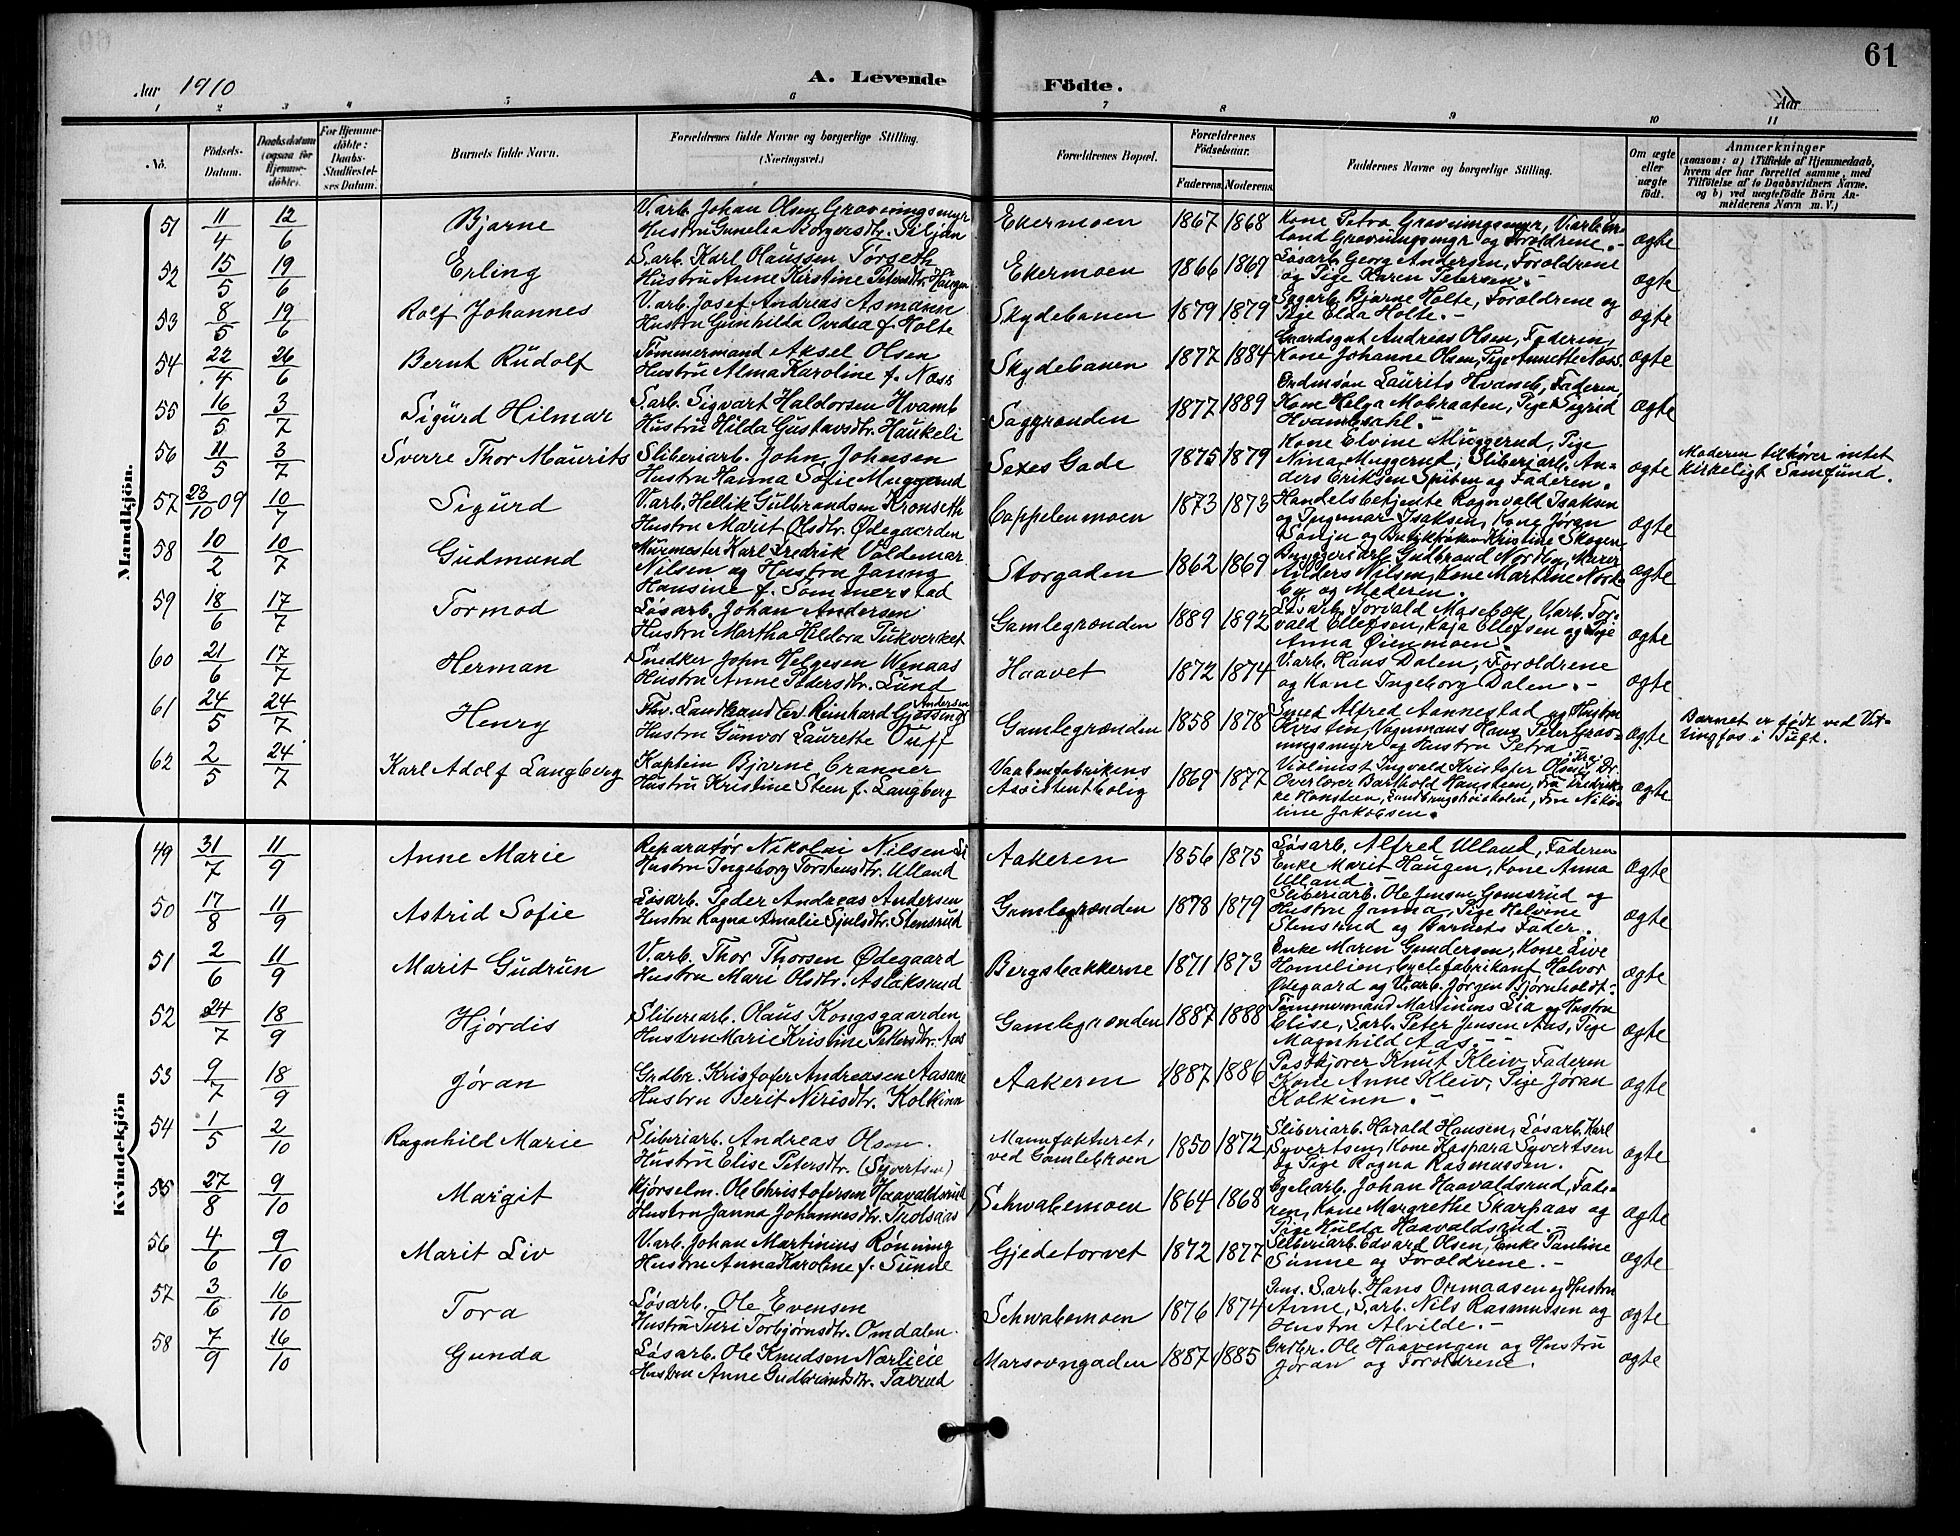 61
Aar 1910
A. Levende
Födte.
Aar
1 2 3 4 5 6 7 8 9 10 11
No.
Födsels-
Datum.
Daabsdatum
(ogsaa for
Hjemme-
döbte).
For Hjemme-
döbte:
Daabs-
Stadfæstel-
ses Datum.
Barnets fulde Navn.
Forældrenes fulde Navne og borgerlige Stilling.
(Næringsvei.)
Forældrenes Bopæl.
Forældrenes
Födselsaar.
Faderens.
Moderens.
Faddernes Navne og borgerlige Stilling.
Om ægte
eller
uægte
födt.
Anmærkninger
(saasom: a) i Tilfælde af Hjemmedaab,
hvem der har forrettet samme, med
Tilföielse af to Daabsvidners Navne,
og b) ved uægtefödte Börn An-
melderens Navn m. V.)
Mandkjön.
51 11/4 12/6 Bjarne
V.arb. Johan Olsen Gravningsmyr
Hustru Gunelia Borgersdtr. Siljan
Ekermoen 1867 1868
Kone Petra Gravningsmyr, V.arb. Er-
land Gravningsmyr og Forældrene.-
ægte
52 15/5 19/6 Erling
S.arb. Karl Olaussen Torseth
Hustru Anne Kirstine Petersdtr. Haugen
Ekermoen 1866 1869
Løsarb. Georg Andersen, Forældrene
og Pige Karen Petersen.-
ægte
53 8/5 19/6 Rolf Johannes
V.arb. Josef Andreas Asmann
Hustru Gunhilda Ovidea f. Holte
Skydebanen 1879 1879
Sagarb. Bjarne Holte, Forældrene og
Pige Elda Holte.-
ægte
54 22/4 26/6 Bernt Rudolf
Tømmermand Aksel Olsen
Hustru Alma Karoline f. Næss
Skydebanen 1877 1884
Gaardsgut Andreas Olsen, Faderen,
Kone Johanne Olsen, Pige Annette Næss.
ægte
55 16/5 3/7 Sigurd Hilmar
S.arb. Sigvart Haldorsen Hvamb
Hustru Hilda Gustavsdtr. Haukeli
Saggrænden 1877 1889
Laurits Hvamb, Faderen,
Kone Helga Mobraaten, Pige Sigrid
Hvambsahl.-
ægte
56 11/5 3/7 Sverre Thor Maurits
Sliberiarb. John Johnsen
Hustru Hanna Sofie Muggerud
Sexes Gade 1875 1879
Kone Elvine Muggerud, Pige
Nina Muggerud, Sliberiarb. An-
ders Eriksen Spiten og Faderen.
ægte
Moderen tilhører intet
kirkeligt Samfund.
57 23/10 09 10/7 Sigurd
V.arb. Hellik Gulbrandsen Kronseth
Hustru Marit Olsdtr. Ødegaarden
Cappelenmoen 1873 1873
Handelsbetjente Ragnvald Isaksen
og Ingemar Isaksen, Kone Jøran
Sønju og Butikfrøken Kristine Skogen
ægte
58 10/2 10/7 Gudmund
Murmester Karl Fredrik Valdemar
Nilsen og Hustru Janny
Hansine f. Sommerstad
Storgaden 1862 1869
Bryggeriarb. Gulbrand Nordby, Murer
Anders Nilsen, Kone Martine Nord-
by og Moderen.
ægte
59 18/6 17/7 Tormod
Løsarb. Johan Andersen
Hustru Martha Heldora Pukverket
Gamlegrænden 1889 1892
Løsarb. Torvald Masebæk, V.arb. Tor-
vald Ellefsen, Kaja Ellefsen og Pige
Anna Øienmoen.
ægte
60 21/6 17/7 Herman
Snedker John Helgesen Wenaas
Hustru Anne Pedersdtr. Lund
Haavet 1872 1874
V.arb. Hans Dalen, Forældrene
og Kone Ingeborg Dalen.-
ægte
61 24/5 24/7 Henry
Fhv. Landhandler Reinhard Andersen Gjessing
Hustru Gunvor Laurette Ouff
Gamlegrænden 1858 1878
Smed Alfred Aannestad og Hustru
Kirsten, Vognmans Hans Peter Grav-
ningsmyr og Hustru Petra
ægte
Barnet er født ved Vit-
tingfos i Tuft.
62 2/5 24/7 Karl Adolf Langberg
Kaptein Bjarne Cranner
Hustru Kristine Steen f. Langberg
Vaabenfabrikens
Assistentbolig 1869 1877
Violinist Ingvald Kristofer Olsen,
Overlærer Barthold Hansteen, Fru Fredrik-
ke Hansteen, Landbrugshøiskolen, Frk Niko-
line Jakobsen.
ægte
Kvindekjön
49 31/7 11/9 Anne Marie
Reparatør Nikolai Nilsen Li
Hustru Ingeborg Torstensdtr. Ulland
Aakeren 1856 1875
Løsarb. Alfred Ulland, Faderen
Enke Marit Haugen, Kone Anna
Ulland.-
ægte
50 17/8 11/9 Astrid Sofie
Løsarb. Peder Andreas Andersen
Hustru Ragna Amalie Sjulsdtr. Stensrud
Gamlegrænden 1878 1879
Sliberiarb. Ole Jensen Gamsrud og
Hustru Janna, Pige Helvine
Stensrud og Barnets Fader.
ægte
51 2/6 11/9 Marit Gudrun
V.arb. Thor Thorsen Ødegaard
Hustru Mari Olsdtr. Aslaksrud
Bergsbakkerne 1871 1873
Enke Maren Gundersen, Kone Live
Homelien, Cyclefabrikant Halvor
Ødegaard og V.arb. Jørgen Bjørnholdt-
ægte
52 24/7 18/9 Hjørdis
Sliberiarb. Olaus Kongsgaarden
Hustru Marie Kristine Pettersdtr. Aas
Gamlegrænden 1887 1888
Tømmermand Martinius Lia og Hustru
Elise, S.arb. Peter Jensen Aas, Pige
Magnhild Aas.-
ægte
53 9/7 18/9 Jøran
Grdbr. Kristofer Andreasen Aasane
Hustru Berit Nirisdtr. Kolkinn
Aakeren 1887 1886
Postkjører Knut Kleiv, Faderen
Kone Anne Kleiv, Pige Jøran
Kolkinn.-
ægte
54 1/5 2/10 Ragnhild Marie
Sliberiarb. Andreas Olsen.
Hustru Elise Petersdtr. (Syvertsen)
Manufakturet,
ved Gamlebroen 1850 1872
Sliberiarb. Harald Hansen, Løsarb. Karl
Syvertsen, Kone Kaspara Syvertsen
og Pige Ragna Rasmussen.
ægte
55 27/8 9/10 Margit
Kjørselm. Ole Christofersen Haavaldsrud
Hustru Janna Johannesdtr. Trolsaas
Schwabemoen 1864 1868
Cyclearb. Johan Haavaldsrud, Fade-
ren, Kone Margrethe Skarpaas og
Pige Hulda Haavaldsrud.-
ægte
56 4/6 9/10 Marit Liv
V.arb. Johan Martinius Rønning
Hustru Anna Karoline f. Sunne
Gjedetorvet 1872 1877
Sliberiarb. Edvard Olsen, Enke Pauline
Sunne og Forældrene.-
ægte
57 3/6 16/10 Tora
Løsarb. Ole Evensen
Hustru Turi Torbjørnsdtr. Omdalen.
Schwabemoen 1876 1874
S.arb. Hans Ormaasen og Hustru
Anne, S.arb. Nils Rasmussen og
Hustru Alvilde.-
ægte
58 7/9 16/10 Gunda
Løsarb. Ole Knudsen Nærlieie
Hustru Anne Gudbrandsdtr. Taxrud
Marsovngaden 1887 1885
Grdbr. Ole Haavengen og Hustru
Jøran og Forældrene.
ægte